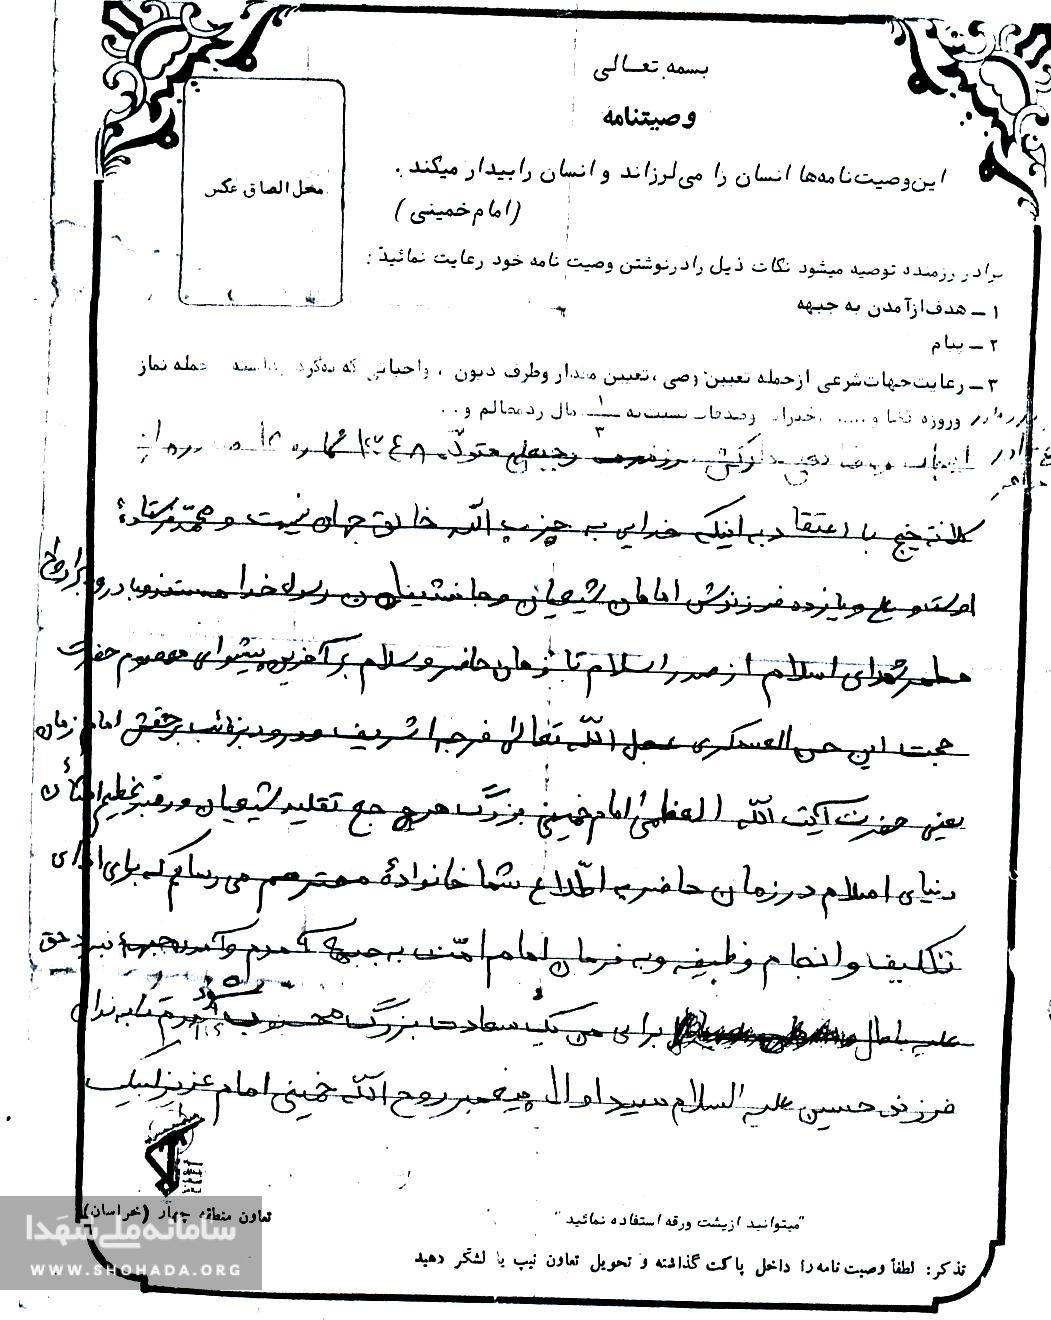 بسمه تعالی
وصیتنامه
این وصیت‌نامه‌ها انسان را می‌لرزاند و انسان را بیدار میکند .
(امام خمینی)
محل الصاق عکس
برادر رزمنده توصیه میشود نکات ذیل را در نوشتن وصیت نامه خود رعایت نمائید :
۱ – هدف از آمدن به جبهه
۲ – پیام
۳ – رعایت جهات شرعی از جمله تعیین وصی ، تعیین مقدار وطرف دیون ، واجباتی که جمله نماز
وروزه قضا و ..... خیرات وصدقات نسبت به ۱/۳ مال ردمظالم و ..
فرزند رجبعلی متولد ۱۳۴۸ شماره
کلاته خیج با اعتقاد به اینکه خدایی به جزب الله خالق جهان نیست و محمد فرستادهٔ
اوست و علی و یازده فرزندش امامان شیعیان و جانشینان رسول خدا هستند و با درود برارواح
مطهر شهدای اسلام از صدر اسلام تا زمان حاضر و سلام بر آخرین پیشوای معصوم حضرت
حجت ابن حسن العسکری عجل الله تعالی فرجه الشریف و درود بر نائب برحقش امام زمان
یعنی حضرت آیت الله العظمی امام خمینی بزرگ مرجع تقلید شیعیان و رهبر عظیم الشأن
دنیای اسلام در زمان حاضر به اطلاع شما خانوادهٔ محترمم می رسانم که برای ادای
تکلیف و انجام وظیفه و به فرمان امام امت به جبهه آمدم و آمدن جبههٔ نبرد حق
علیه باطل برای من یک سعادت بزرگ محسوب میشود آمدم تا به ندای
فرزند حسین علیه السلام سید اولاد پیغمبر روح الله خمینی امام عزیز لبیک
تعاون منطقه چهار (خراسان)
"میتوانید از پشت ورقه استفاده نمائید"
تذکر: لطفاً وصیت نامه را داخل پاکت گذاشته و تحویل تعاون تیپ یا لشگر دهید
سامانه ملی شهدا
WWW.SHOHADA.ORG